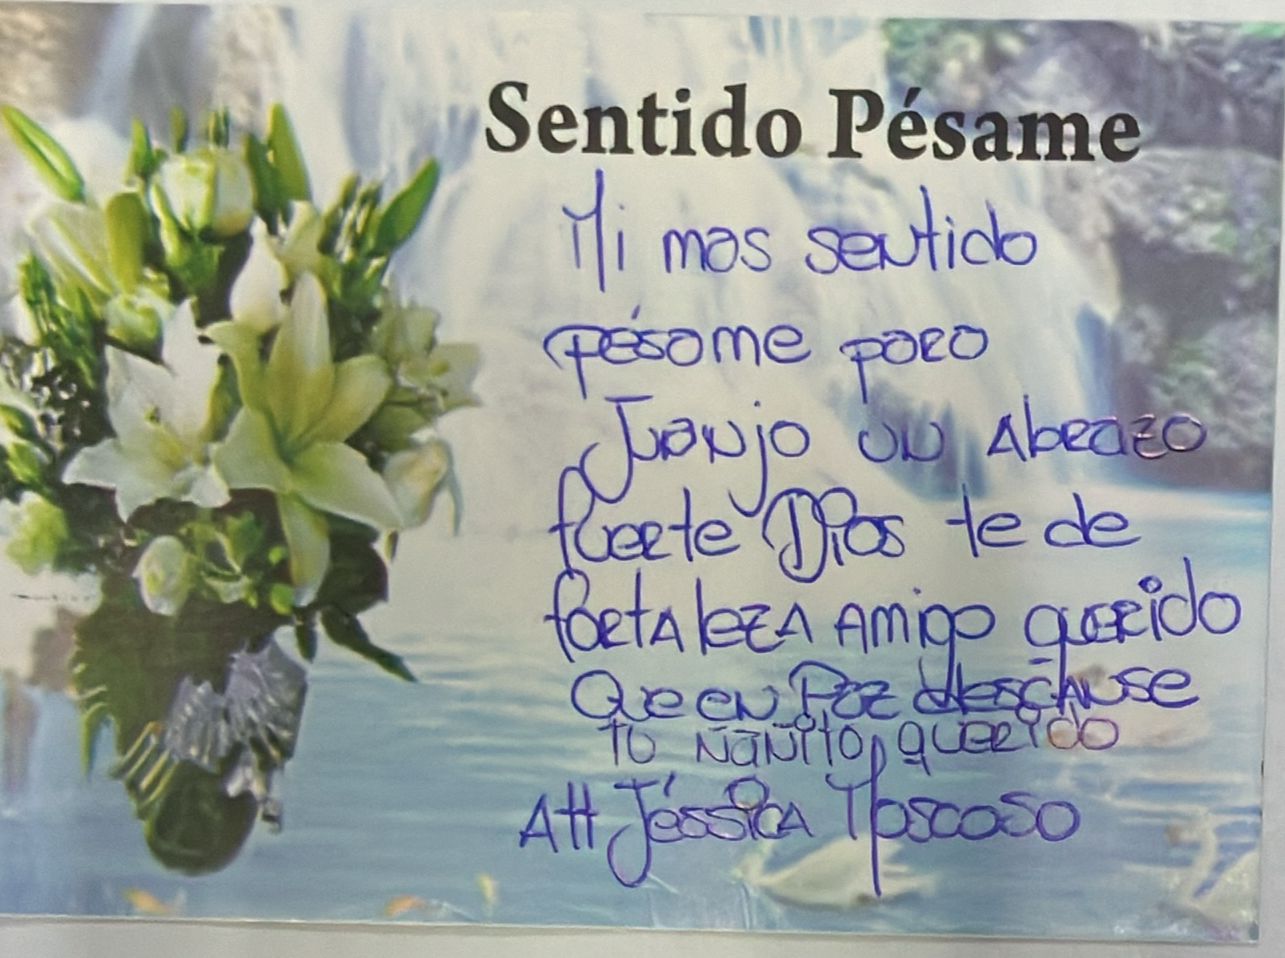 Sentido Pésame
Mi mas sentido
pésame para
Juanjo un Abrazo
fuerte Dios te de
fortaleza Amigo querido
Que en Paz descanse
tu ñañito querido
Att Jéssica Moscoso